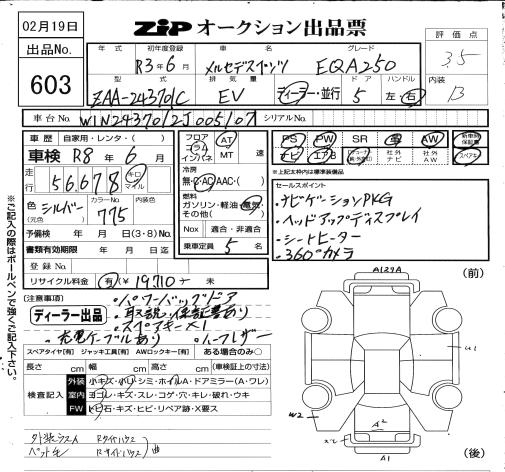 02月19日
ZIP オークション出品票
評価点
3.5
出品No.
603
年式
初年度登録
R3年6月
車名
メルセデスベンツ
グレード
EQA250
型式
ZAA-243701C
排気量
EV
ディーラー・並行
ドア
5
ハンドル
左・右
内装
B
車台No.
W1N2437012J005107
シリアルNo.
車歴 自家用・レンタ・( )
車検 R8年6月
走行 56,678 キロ マイル
色(元色) シルバー
カラーNo. 775
内装色
予備検 年 月 日(3・8)No.
書類有効期限 年 月 日迄
登録No.
リサイクル料金 有(¥19710) 未
フロア コラム インパネ
AT
MT 速
冷房
無・AC・AAC・( )
燃料
ガソリン・軽油・電気・その他( )
Nox 適合・非適合
乗車定員 5 名
PS PW SR 革 AW 新車時保証書
ナビ エアB 社外ナビ 社外AW スペアキー
※上記太枠内は標準装備品
セールスポイント
・ナビゲーションPKG
・ヘッドアップディスプレイ
・シートヒーター
・360°カメラ
※ご記入の際はボールペンで強くご記入下さい。
(注意事項)
・パワーバックドア
ディーラー出品
・取説・保証書あり
・スペアキー×1
・充電ケーブルあり
・ハーフレザー
スペアタイヤ[有] ジャッキ工具[有] AWロックキー[有] ある場合のみ○
長さ cm 幅 cm 高さ cm (車検証上の寸法)
検査記入
外装 小キズ・小凹・シミ・ホイルA・ドアミラー(A・ワレ)
室内 ヨゴレ・キズ・スレ・コゲ・穴・キレ・破れ・ウキ
FW トビ石・キズ・ヒビ・リペア跡・X要ス
(前)
(後)
W2
A2
A1